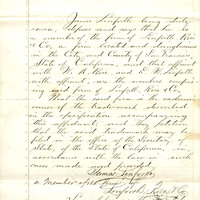 James Linforth being duly
sworn, deposes and says that he is
a member of the firm of Linforth Rice
& Co, a firm located and doing business
in the City and County of San Francisco
State of California, and that affiant
with
with affiant, are the members compos-
ing said firm of Linforth, Rice & Co.
That the said firm is the
owner of the Trademark described
in the specification accompanying
this affidavit, and they petition
that the said Trademark may be
filed in the office of the Secretary
of State, of the State of California, in
accordance with the law in such
case made and provided.
James Linforth
a member of the firm of
Linforth, Rice & Co.